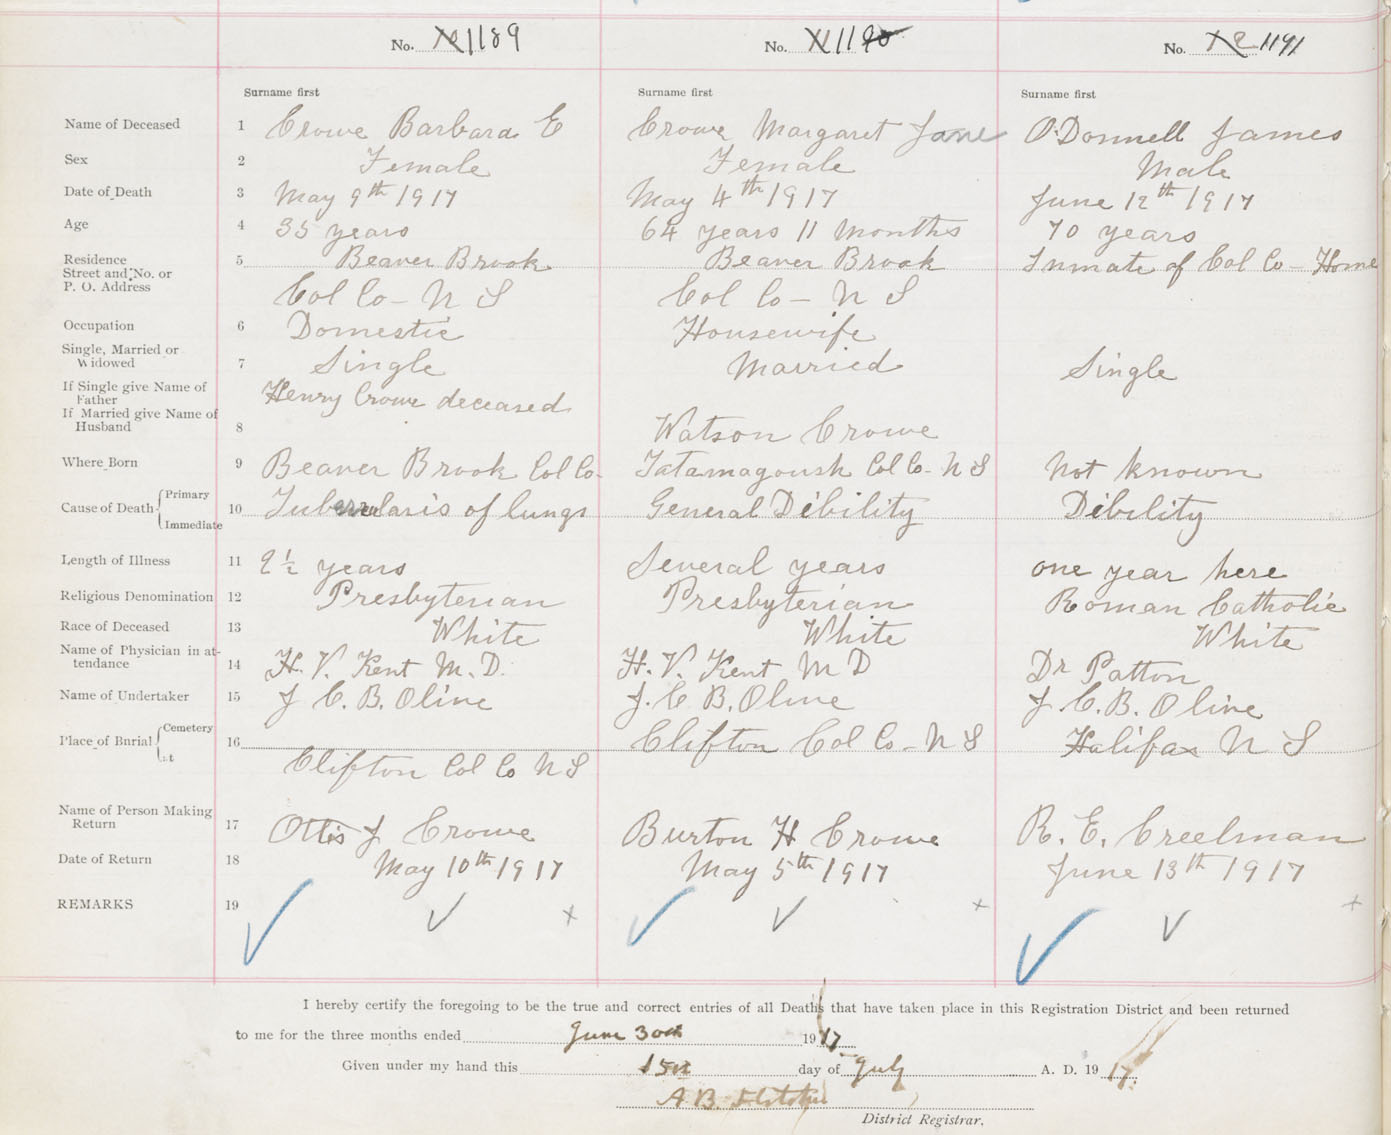 No. 1189 No. 1190 No. 1191
Surname first Surname first Surname first
Name of Deceased 1 Crowe Barbara E Crowe Margaret Jane O'Donnell James
Sex 2 Female Female Male
Date of Death 3 May 9th 1917 May 4th 1917 June 12th 1917
Age 4 35 years 64 years 11 months 70 years
Residence 5 Beaver Brook Beaver Brook Inmate of Col Co - Home
Street and No. or
P. O. Address Col Co - N S Col Co - N S
Occupation 6 Domestic Housewife
Single, Married or
Widowed 7 Single Married Single
If Single give Name of
Father Henry Crowe deceased
If Married give Name of
Husband 8 Watson Crowe
Where Born 9 Beaver Brook Col Co- Tatamagoush Col Co- N S Not known
Cause of Death Primary
10 Tubercularis of lungs General Dibility Dibility
Immediate
Length of Illness 11 2½ years Several years one year here
Religious Denomination 12 Presbyterian Presbyterian Roman Catholic
Race of Deceased 13 White White White
Name of Physician in at-
tendance 14 H. V. Kent M. D. H. V. Kent M D Dr Patton
Name of Undertaker 15 J C. B. Oline J. C B. Oline J. C. B. Oline
Place of Burial Cemetery
at 16 Clifton Col Co N S Clifton Col Co - N S Halifax N S
Name of Person Making
Return 17 Ottis J Crowe Burton H Crowe R. E. Creelman
Date of Return 18 May 10th 1917 May 5th 1917 June 13th 1917
REMARKS 19
I hereby certify the foregoing to be the true and correct entries of all Deaths that have taken place in this Registration District and been returned
to me for the three months ended June 30th 1917.
Given under my hand this 15th day of July A. D. 1917.
A. B.
District Registrar.